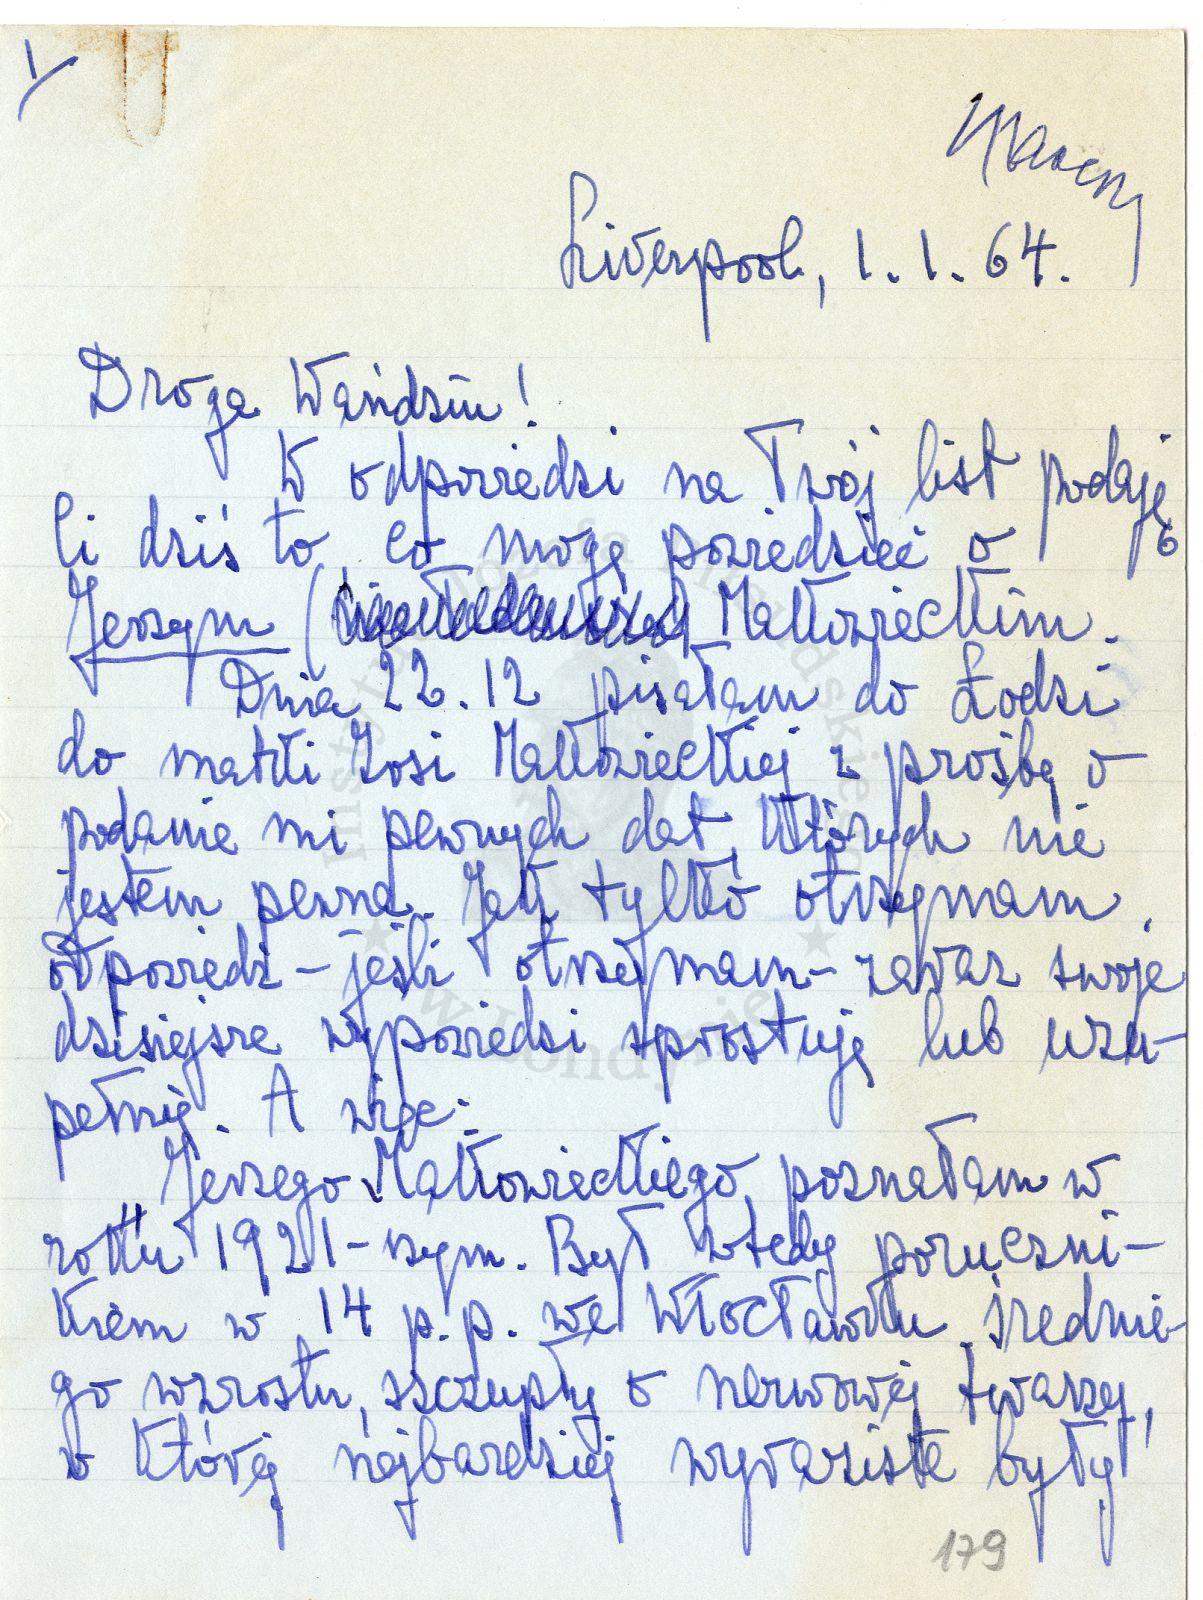 1/
Liverpool, 1.1.64.
Droga Wańdziu!
W odpowiedzi na Twój list podaję
Ci dziś to, co mogę powiedzieć o
Jerzym ( ) Małłowieckim.
Dnia 22.12 pisałam do Łodzi
do matki Zosi Małłowieckiej z prośbą o
podanie mi pewnych dat, których nie
jestem pewna. Jak tylko otrzymam
odpowiedź – jeśli otrzymam – zaraz swoje
dzisiejsze wypowiedzi sprostuję lub uzu-
pełnię. A więc:
Jerzego Małłowieckiego poznałam w
roku 1921-szym. Był wtedy poruczni-
kiem w 14 p.p. we Włocławku, średnie-
go wzrostu, szczupły o nerwowej twarzy,
w której najbardziej wyraziste były
179
Instytut Józefa Piłsudskiego
w Londynie